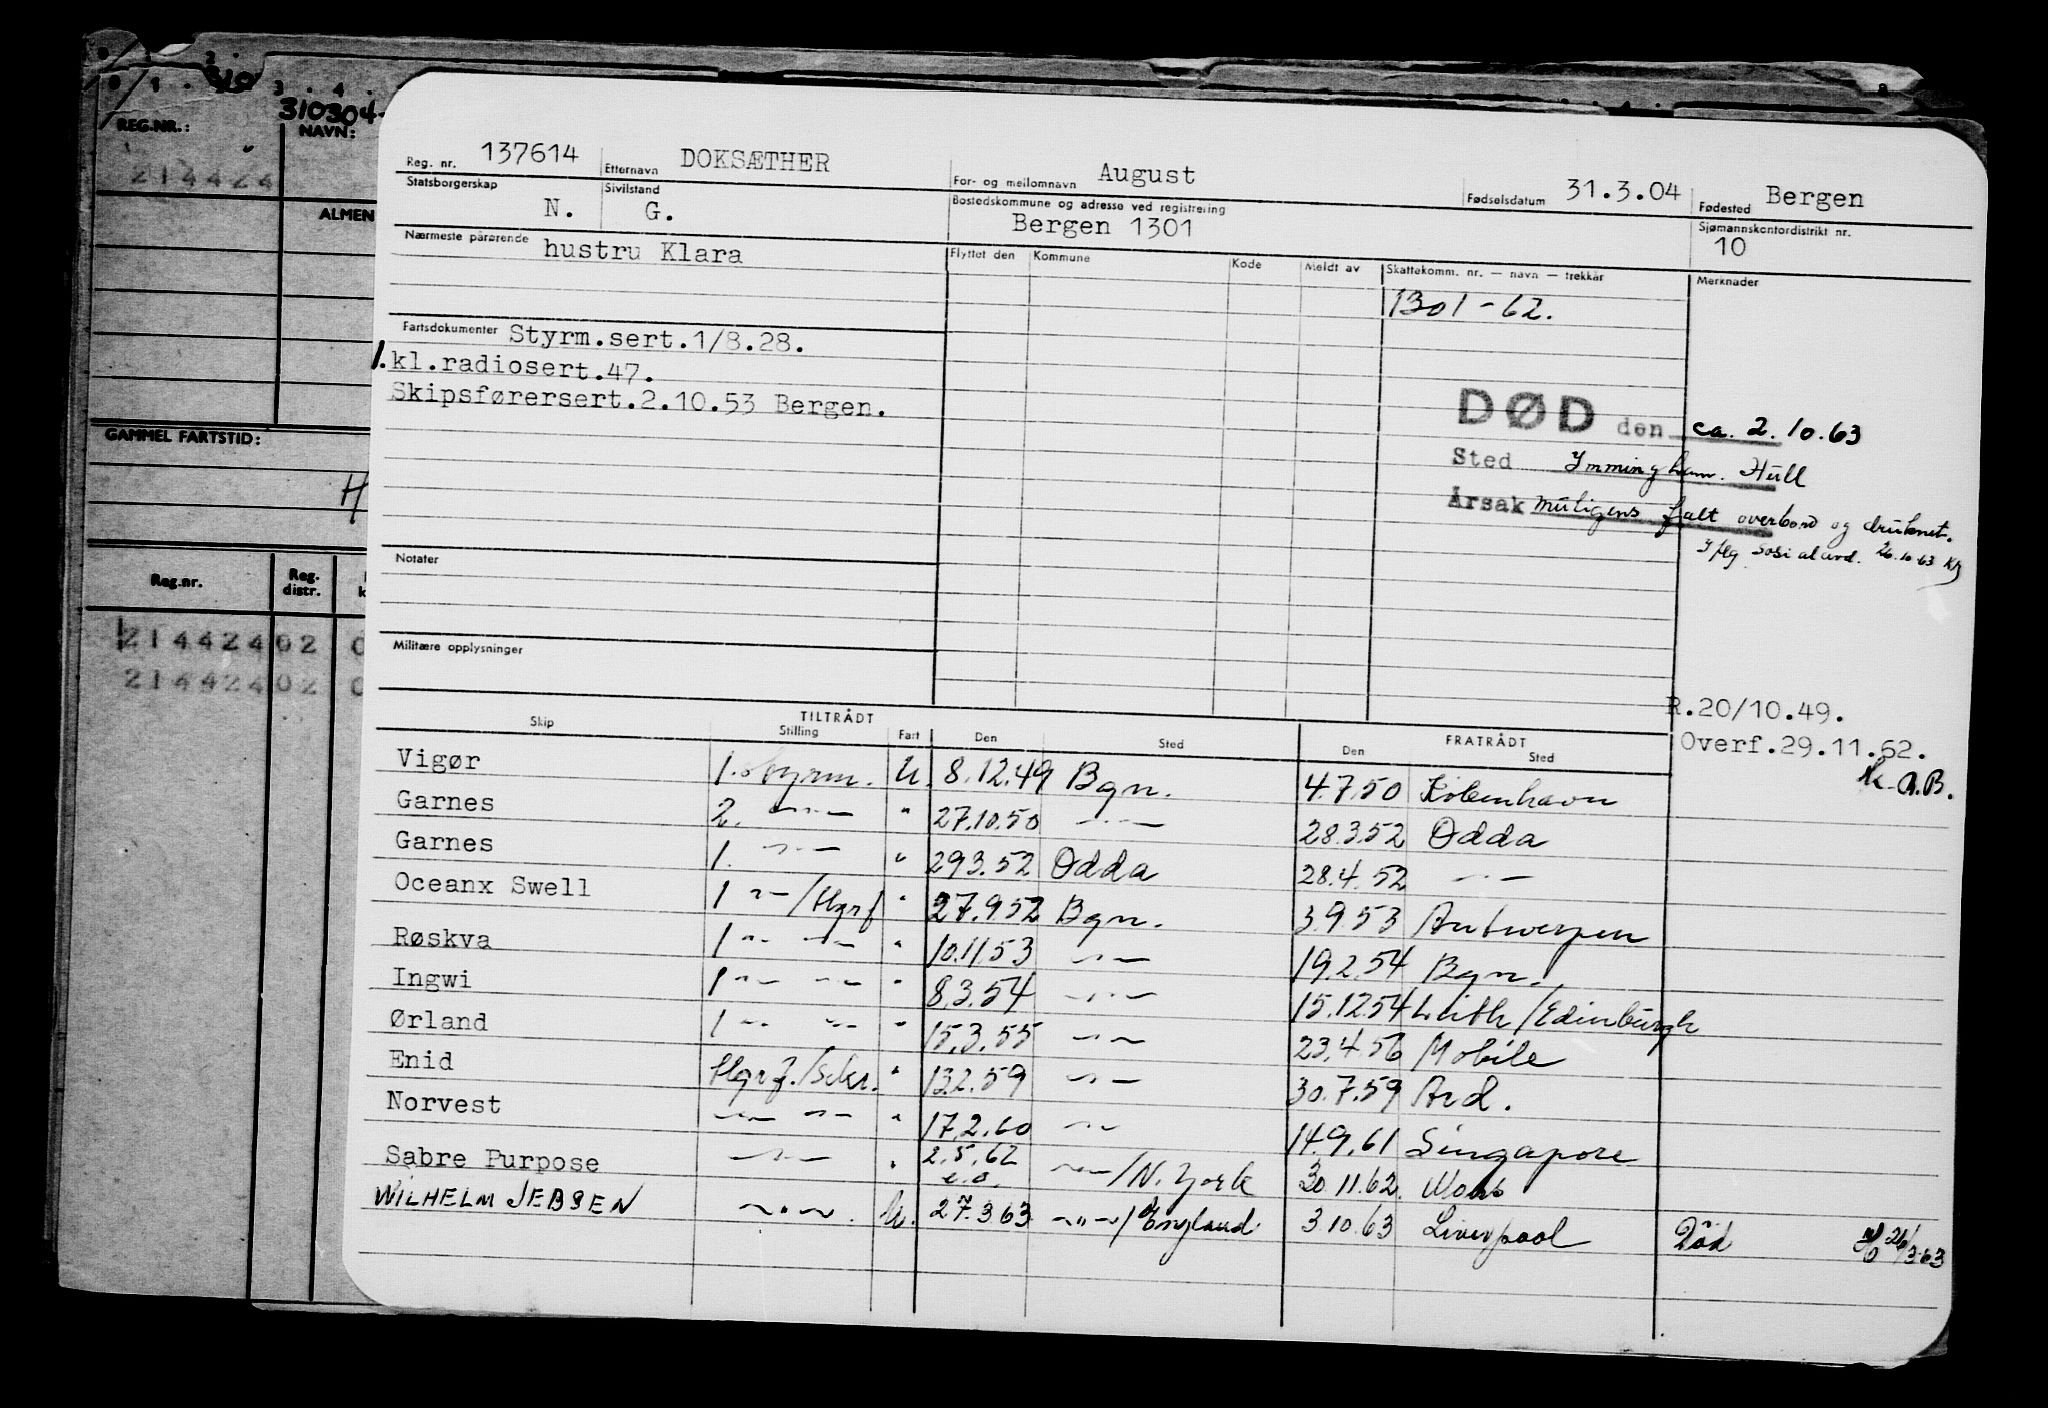 310304
REG.NR.:
NAVN:
214424
ALMEN
GAMMEL FARTSTID:
H
Reg.nr. Reg. distr.
214424 02
214424 02
Reg. nr. 137614 Etternavn DOKSÆTHER For- og mellomnavn August Fødselsdatum 31.3.04 Fødested Bergen
Statsborgerskap N. Sivilstand G. Bostedskommune og adresse ved registrering Bergen 1301 Sjømannskontordistrikt nr. 10
Nærmeste pårørende hustru Klara
Flyttet den Kommune Kode Meldt av Skattekomm. nr. — navn — trekkår Merknader
1301-62.
Fartsdokumenter Styrm.sert.1/8.28.
1.kl.radiosert.47.
Skipsførersert.2.10.53 Bergen.
DØD den ca. 2.10.63
Sted Immingham. Hull
Årsak muligens falt overbord og druknet.
Iflg Sosialavd. 26.10.63
Notater
Militære opplysninger
R.20/10.49.
Overf.29.11.62.
A.B.
TILTRÅDT FRATRÅDT
Skip Stilling Fart Den Sted Den Sted
Vigør 1. styrm. U. 8.12.49 Bgn. 4.7.50 København
Garnes 2. —"— " 27.10.50 —"— 28.3.52 Odda
Garnes 1. —"— " 29.3.52 Odda 28.4.52 —"—
Oceanx Swell 1 —"—/tlgrf " 27.9.52 Bgn. 3.9.53 Antwerpen
Røskva 1 —"— —"— " 10.11.53 —"— 19.2.54 Bgn.
Ingwi 1 —"— —"— " 8.3.54 —"— 15.12.54 Leith/Edinburgh
Ørland 1 —"— —"— " 15.3.55 —"— 23.4.56 Mobile
Enid tlgrf./sekr. " 13.2.59 —"— 30.7.59 Ard.
Norvest —"— —"— " 17.2.60 —"— 14.9.61 Singapore
Sabre Purpose —"— " 2.5.62 e.o. —"—/N. York 30.11.62.
WILHELM JEBSEN —"—. U. 27.3.63 —"—/England. 3.10.63 Liverpool Død 26/3.63